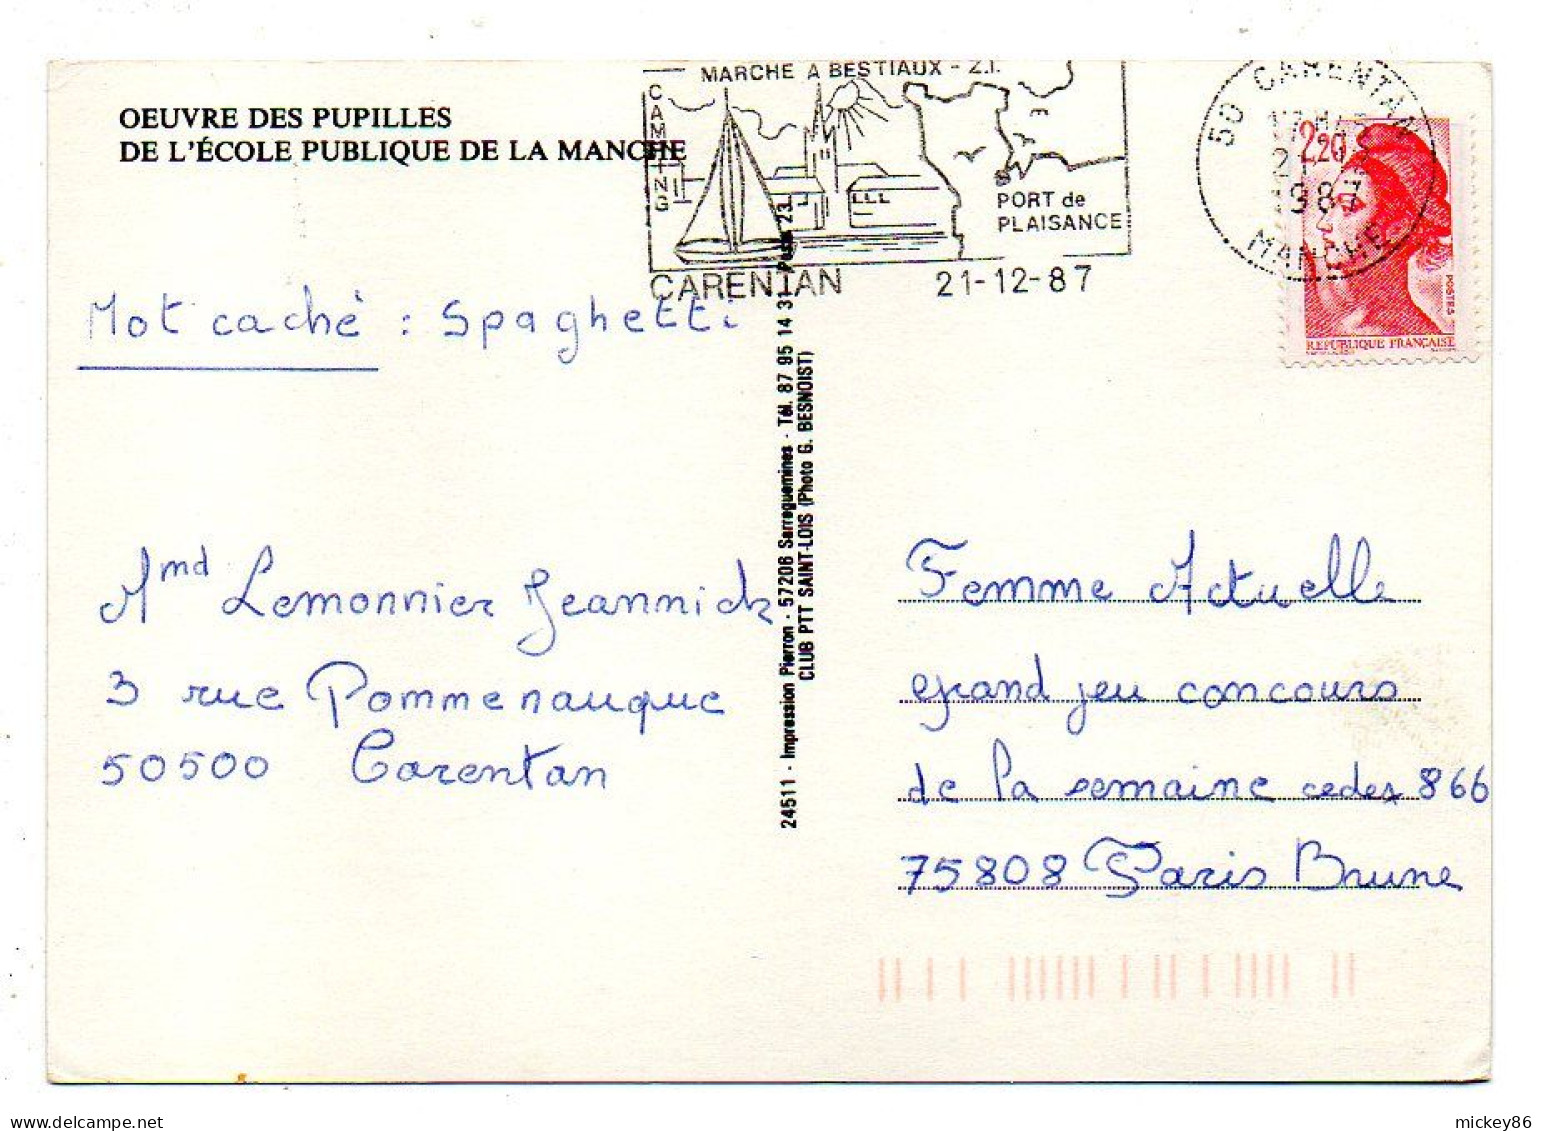 OEUVRE DES PUPILLES
DE L'ÉCOLE PUBLIQUE DE LA MANCHE
MARCHE A BESTIAUX - Z.I.
CAMPING
PORT de
PLAISANCE
CARENTAN 21-12-87
50 CARENTAN
1987
MANCHE
2,20
POSTES
REPUBLIQUE FRANÇAISE
Mot caché : Spaghetti
Mmd Lemonnier Jeannick
3 rue Pommenauque
50500 Carentan
24511 - Impression Pierron - 57206 Sarreguemines - Tél. 87 95 14 31 Poste 23
CLUB PTT SAINT-LOIS (Photo G. BESNOIST)
Femme Actuelle
grand jeu concours
de la semaine cedex 866
75808 Paris Brune
mickey86